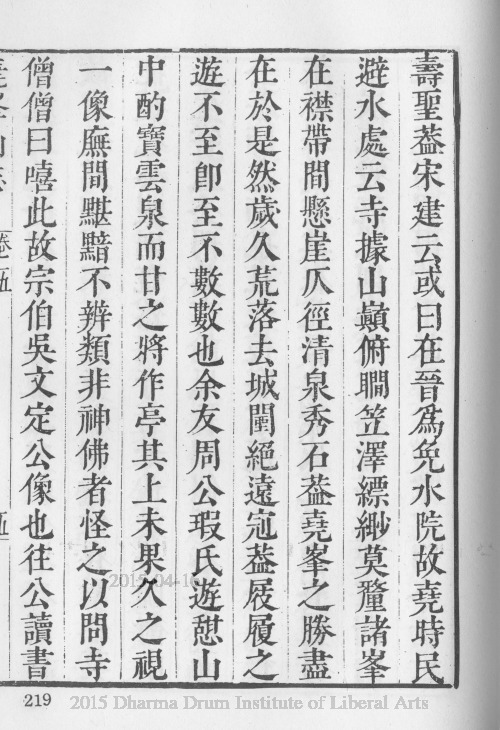 壽聖葢宋建云或曰在晉為免水院故堯時民
避水處云寺據山顛俯瞯笠澤縹緲莫釐諸峯
在襟帶間懸崖仄徑清泉秀石葢堯峯之勝盡
在於是然歲久荒落去城闉絕遠冠葢屐履之
遊不至卽至不數數也余友周公瑕氏遊憇山
中酌寶雲泉而甘之將作亭其上未果久之視
一像廡間黮黯不辨類非神佛者怪之以問寺
僧僧曰嘻此故宗伯吳文定公像也往公讀書
卷五
五
219
2015 Dharma Drum Institute of Liberal Arts